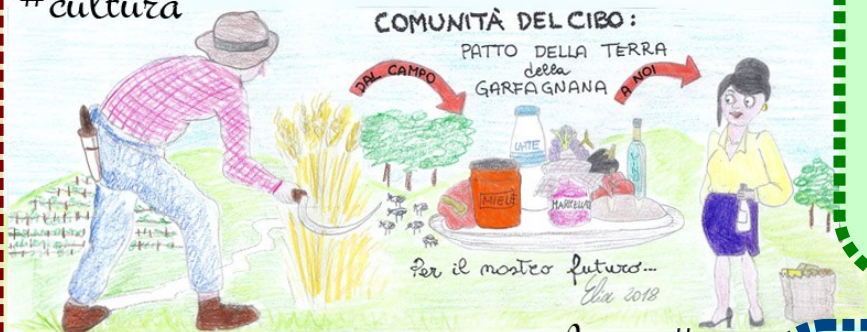 #cultura
COMUNITÀ DEL CIBO:
PATTO DELLA TERRA
della
GARFAGNANA
DAL CAMPO
A NOI
LATTE
VINO
MIELE
Per il nostro futuro...
Elia 2018